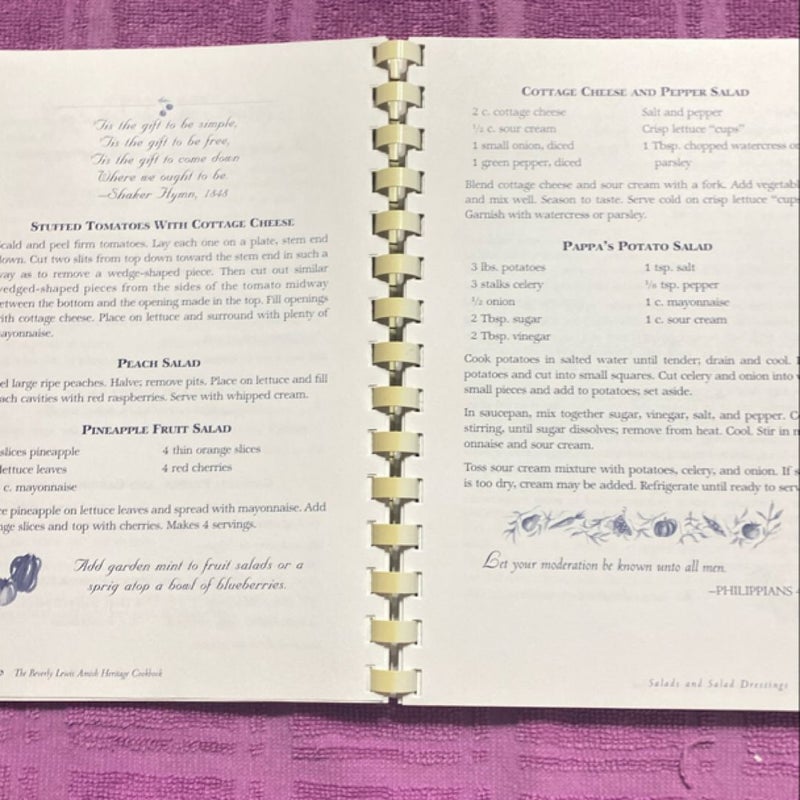 'Tis the gift to be simple,
'Tis the gift to be free,
'Tis the gift to come down
Where we ought to be.
—Shaker Hymn, 1848
STUFFED TOMATOES WITH COTTAGE CHEESE
cald and peel firm tomatoes. Lay each one on a plate, stem end
own. Cut two slits from top down toward the stem end in such a
way as to remove a wedge-shaped piece. Then cut out similar
wedged-shaped pieces from the sides of the tomato midway
etween the bottom and the opening made in the top. Fill openings
ith cottage cheese. Place on lettuce and surround with plenty of
ayonnaise.
PEACH SALAD
el large ripe peaches. Halve; remove pits. Place on lettuce and fill
ach cavities with red raspberries. Serve with whipped cream.
PINEAPPLE FRUIT SALAD
slices pineapple 4 thin orange slices
lettuce leaves 4 red cherries
c. mayonnaise
ce pineapple on lettuce leaves and spread with mayonnaise. Add
nge slices and top with cherries. Makes 4 servings.
Add garden mint to fruit salads or a
sprig atop a bowl of blueberries.
The Beverly Lewis Amish Heritage Cookbook
COTTAGE CHEESE AND PEPPER SALAD
2 c. cottage cheese Salt and pepper
1/2 c. sour cream Crisp lettuce "cups"
1 small onion, diced 1 Tbsp. chopped watercress or
1 green pepper, diced parsley
Blend cottage cheese and sour cream with a fork. Add vegetabl
and mix well. Season to taste. Serve cold on crisp lettuce "cups
Garnish with watercress or parsley.
PAPPA'S POTATO SALAD
3 lbs. potatoes 1 tsp. salt
3 stalks celery 1/8 tsp. pepper
1/2 onion 1 c. mayonnaise
2 Tbsp. sugar 1 c. sour cream
2 Tbsp. vinegar
Cook potatoes in salted water until tender; drain and cool.
potatoes and cut into small squares. Cut celery and onion into
small pieces and add to potatoes; set aside.
In saucepan, mix together sugar, vinegar, salt, and pepper. Co
stirring, until sugar dissolves; remove from heat. Cool. Stir in m
onnaise and sour cream.
Toss sour cream mixture with potatoes, celery, and onion. If s
is too dry, cream may be added. Refrigerate until ready to serv
Let your moderation be known unto all men.
—PHILIPPIANS 4
Salads and Salad Dressings